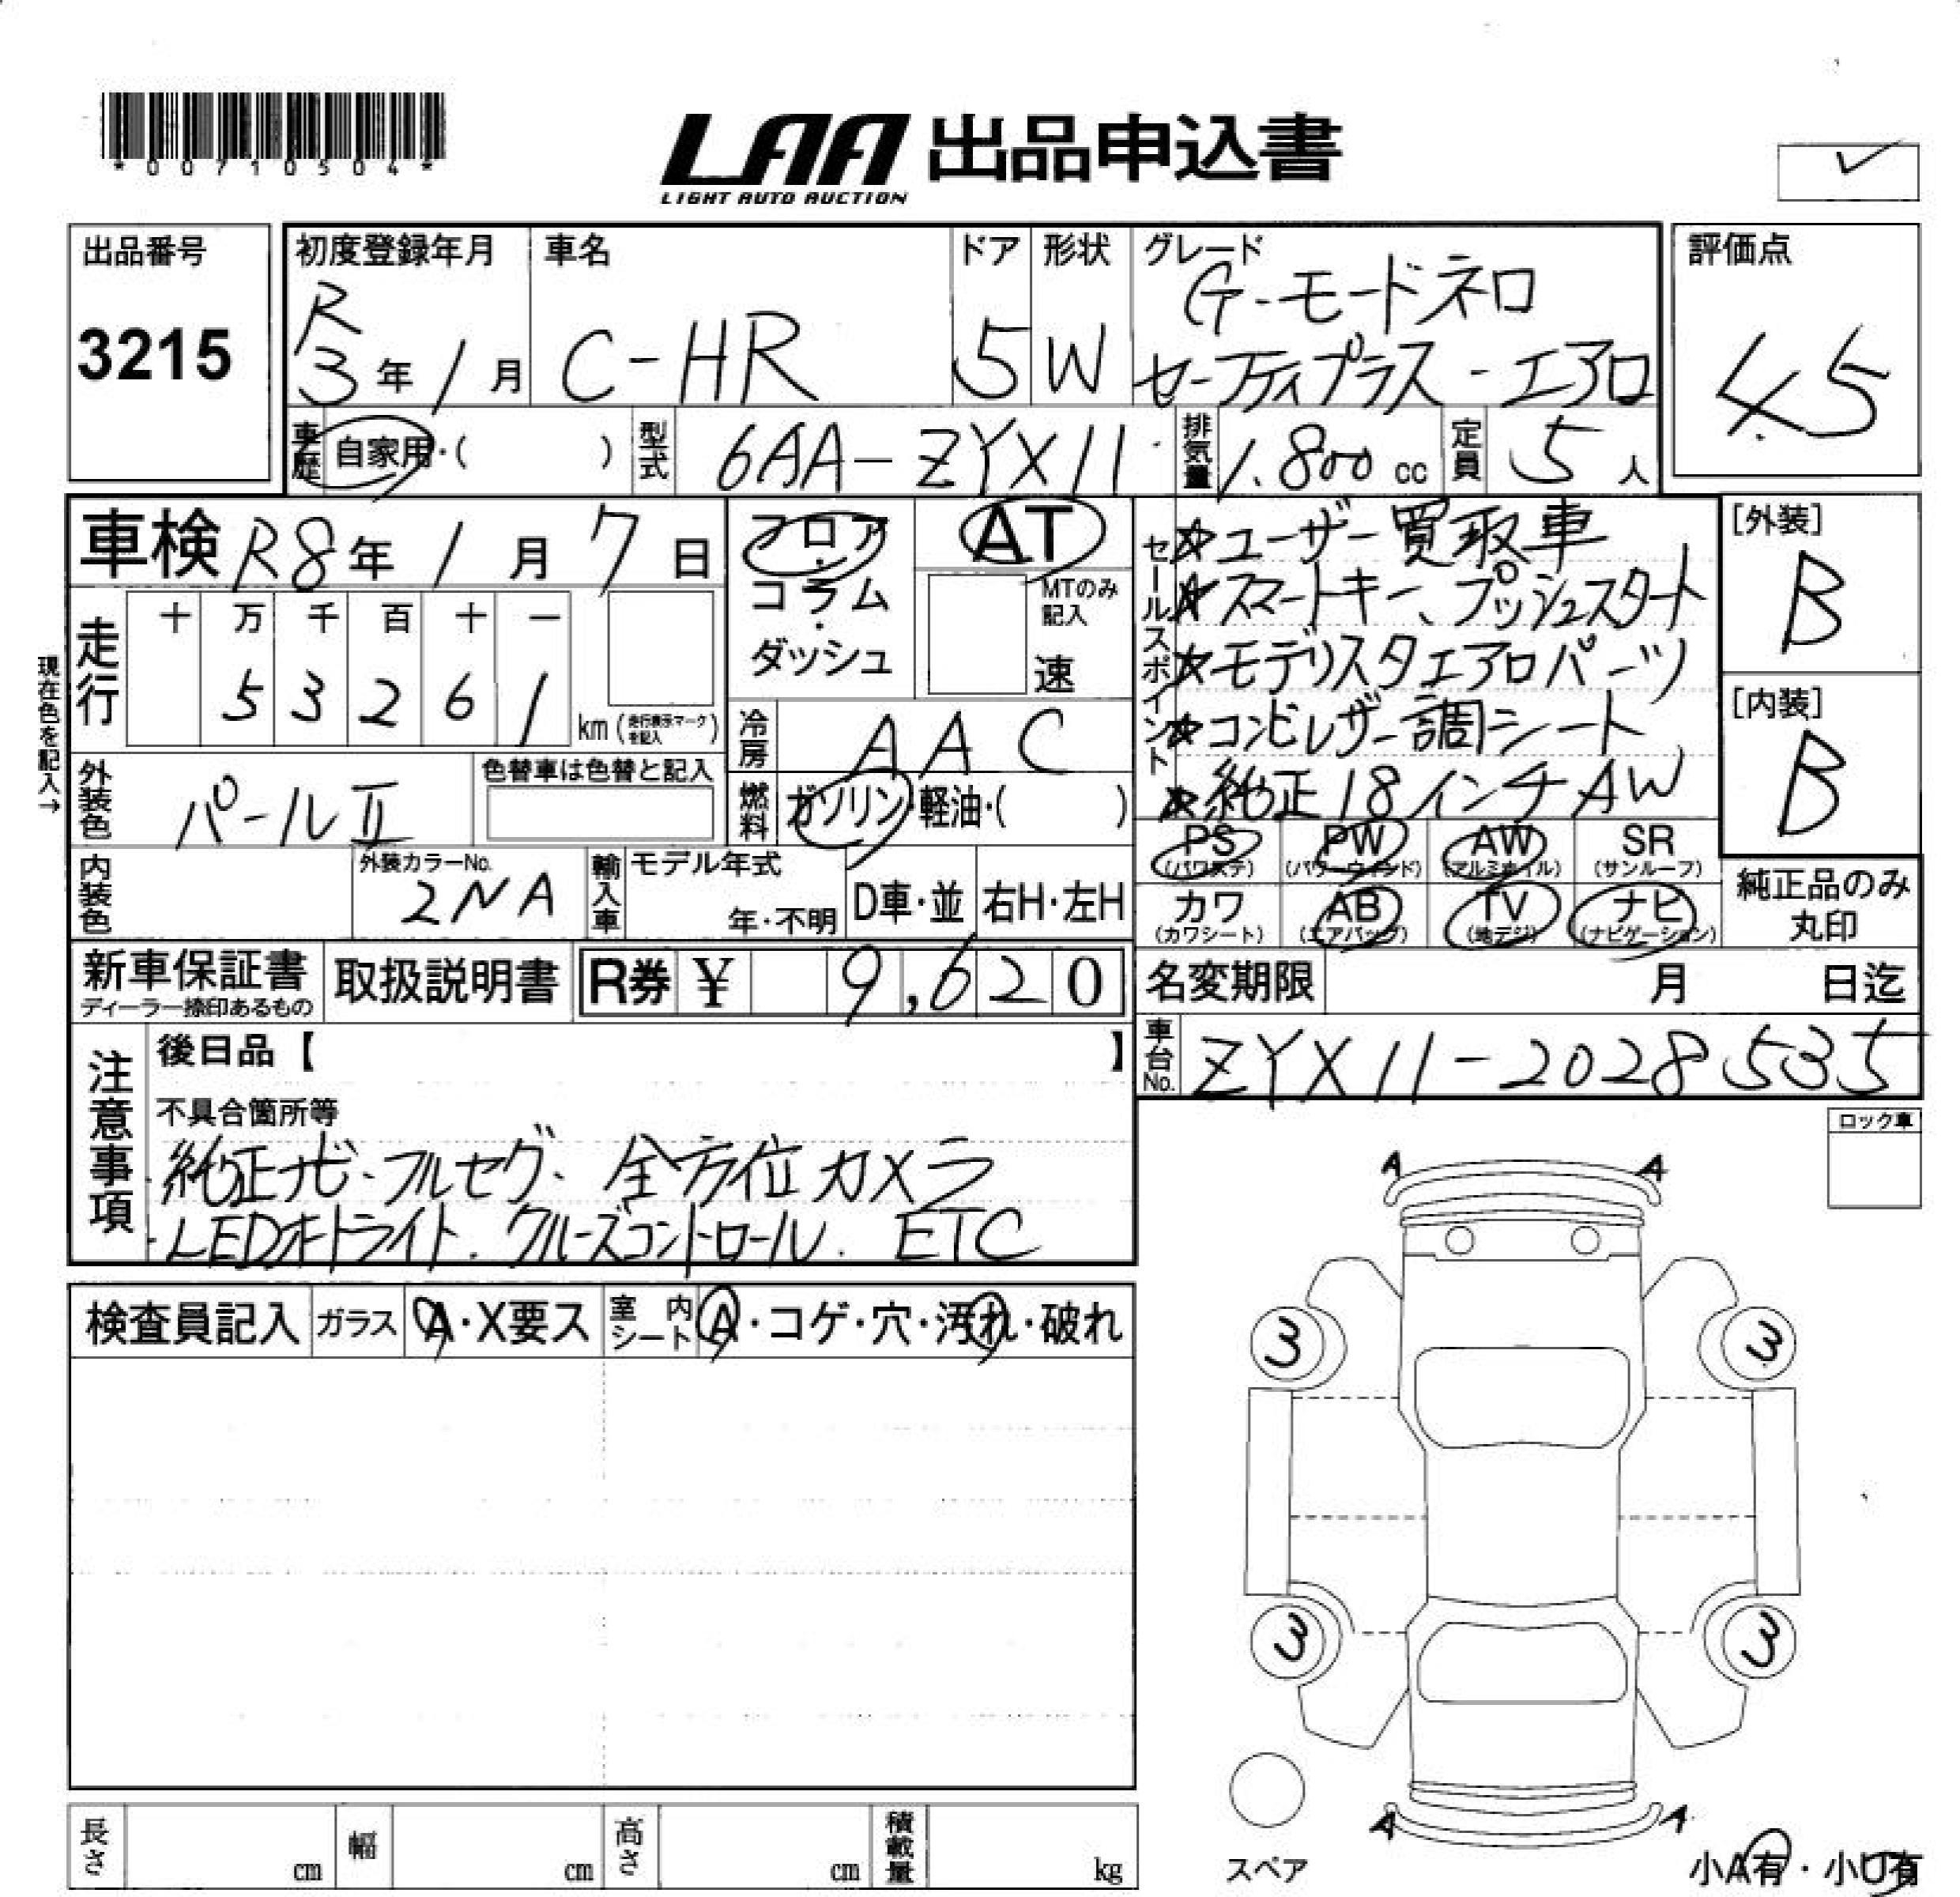 *00710504*
LAA 出品申込書
LIGHT AUTO AUCTION
出品番号
3215
初度登録年月
R
3年1月
車名
C-HR
ドア
5
形状
W
グレード
G-モードネロ
セーフティプラス-エアロ
評価点
4.5
車歴
自家用・( )
型式
6AA-ZYX11
排気量
1.800 cc
定員
5人
車検 R8年1月7日
フロア
・
コラム
・
ダッシュ
AT
MTのみ
記入
速
走行
十 万 千 百 十 一
5 3 2 6 1
km(走行表示マークを記入)
現在色を記入→
冷房
AAC
燃料
ガソリン・軽油・( )
外装色
パールⅡ
色替車は色替と記入
内装色
外装カラーNo.
2NA
輸入車
モデル年式
年・不明
D車・並
右H・左H
セールスポイント
☆ユーザー買取車
☆スマートキー、プッシュスタート
☆モデリスタエアロパーツ
☆コンビレザー調シート
☆純正18インチAW
[外装]
B
[内装]
B
PS (パワステ)
PW (パワーウィンド)
AW (アルミホイル)
SR (サンルーフ)
カワ (カワシート)
AB (エアバッグ)
TV (地デジ)
ナビ (ナビゲーション)
純正品のみ
丸印
新車保証書
ディーラー捺印あるもの
取扱説明書
R券 ¥ 9,620
名変期限 月 日迄
車台No.
ZYX11-2028535
注意事項
後日品【 】
不具合箇所等
純正ナビ・フルセグ・全方位カメラ
LEDオートライト.クルーズコントロール.ETC
検査員記入
ガラス
A・X要ス
室内シート
A・コゲ・穴・汚れ・破れ
ロック車
A A
3 3
3 3
A A
スペア
小A有・小U有
長さ cm
幅 cm
高さ cm
積載量 kg